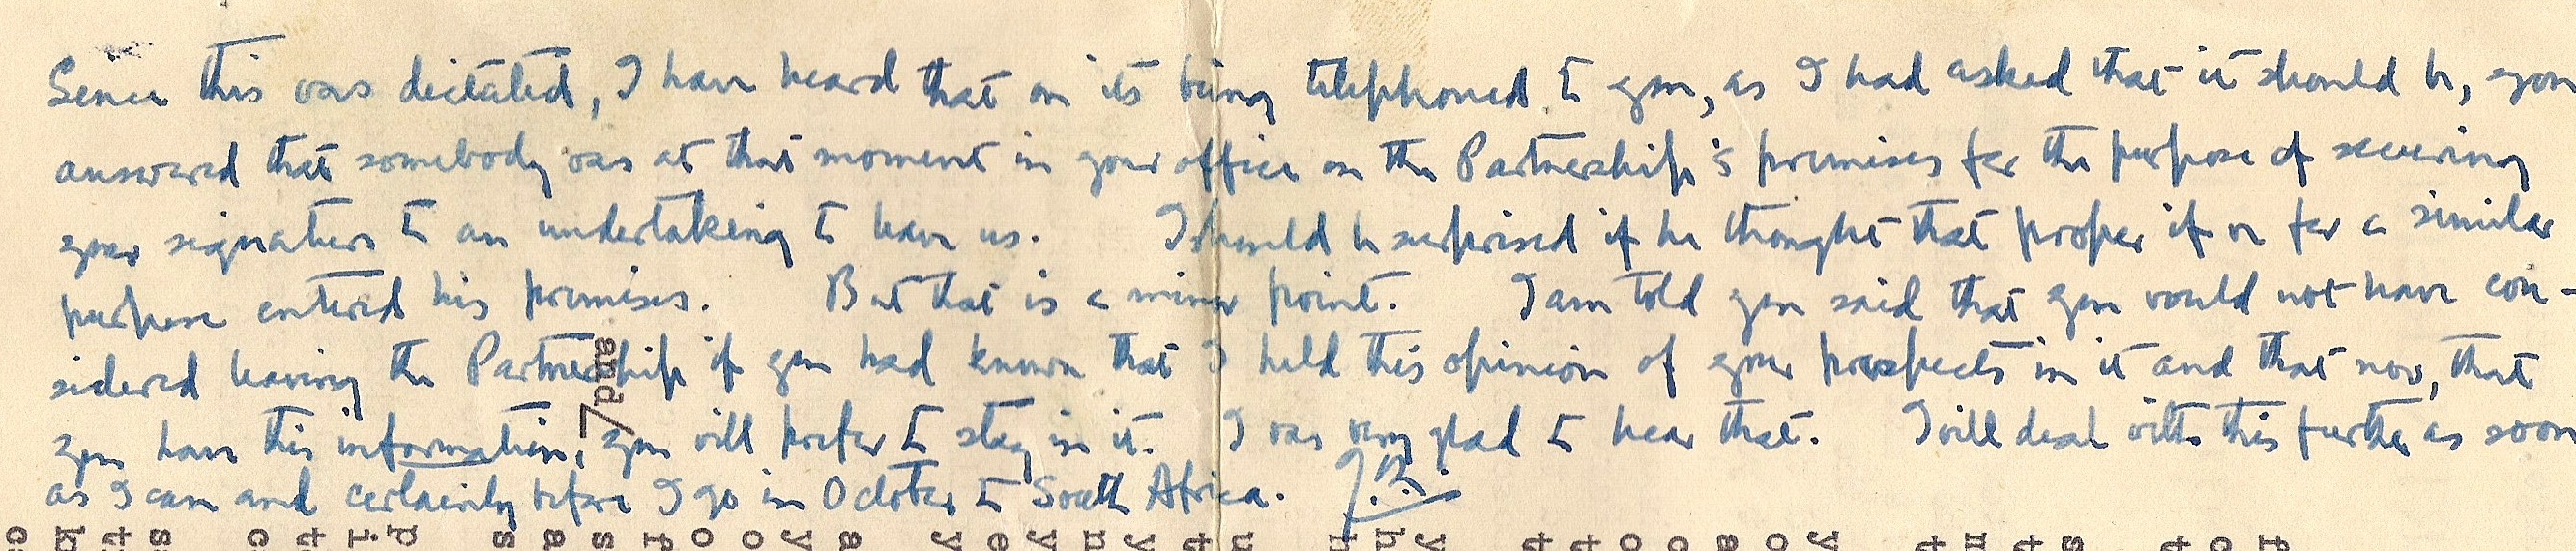 Since this was dictated, I have heard that on its being telephoned to you, as I had asked that it should be, you
answered that somebody was at that moment in your office on the Partnership's premises for the purpose of securing
your signature to an undertaking to leave us. I should be surprised if he thought that proper if we for a similar
purpose entered his premises. But that is a minor point. I am told you said that you would not have con-
sidered leaving the Partnership if you had known that I held this opinion of your prospects in it and that now, that
you have this information, you will prefer to stay in it. I was very glad to hear that. I will deal with this further as soon
as I can and certainly before I go in October to South Africa.
and/